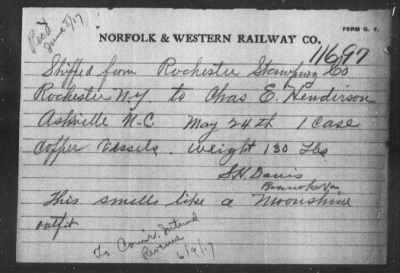 Rec'd
June 8/17
FORM G. 7.
NORFOLK & WESTERN RAILWAY CO.
11697
Shipped from Rochester Stamping Co
Rochester N.Y. to Chas E. Henderson
Ashville N.C. May 24th 1 Case
Copper Vessels. Weight 130 Lbs
S.H. Davis
This smells like a Moonshine
outfit
To Com'r. Internal
Revenue
6/9/17